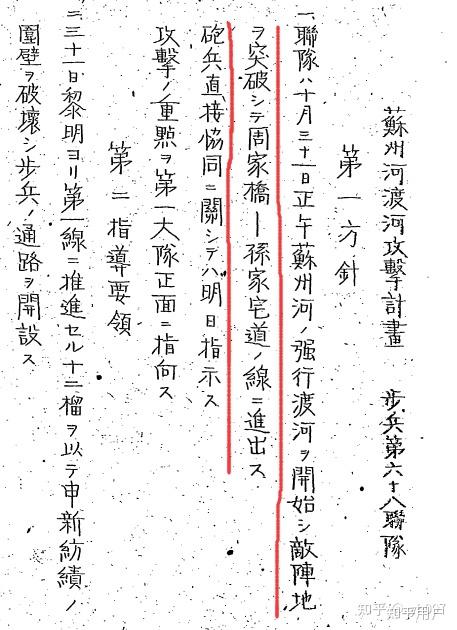 蘇州河渡河攻擊計畫　步兵第六十八聯隊
第一方針
一、聯隊ハ十月三十一日正午蘇州河ノ强行渡河ヲ開始シ敵陣地
ヲ突破シテ周家橋ー孫家宅道ノ線ニ進出ス
砲兵直接協同ニ關シテハ明日指示ス
攻擊ノ重點ヲ第一大隊正面ニ指向ス
第二指導要領
二、三十一日黎明ヨリ第一線ニ推進セル十二榴ヲ以テ申新紡績ノ
圍壁ヲ破壞シ步兵ノ通路ヲ開設ス
知乎用户